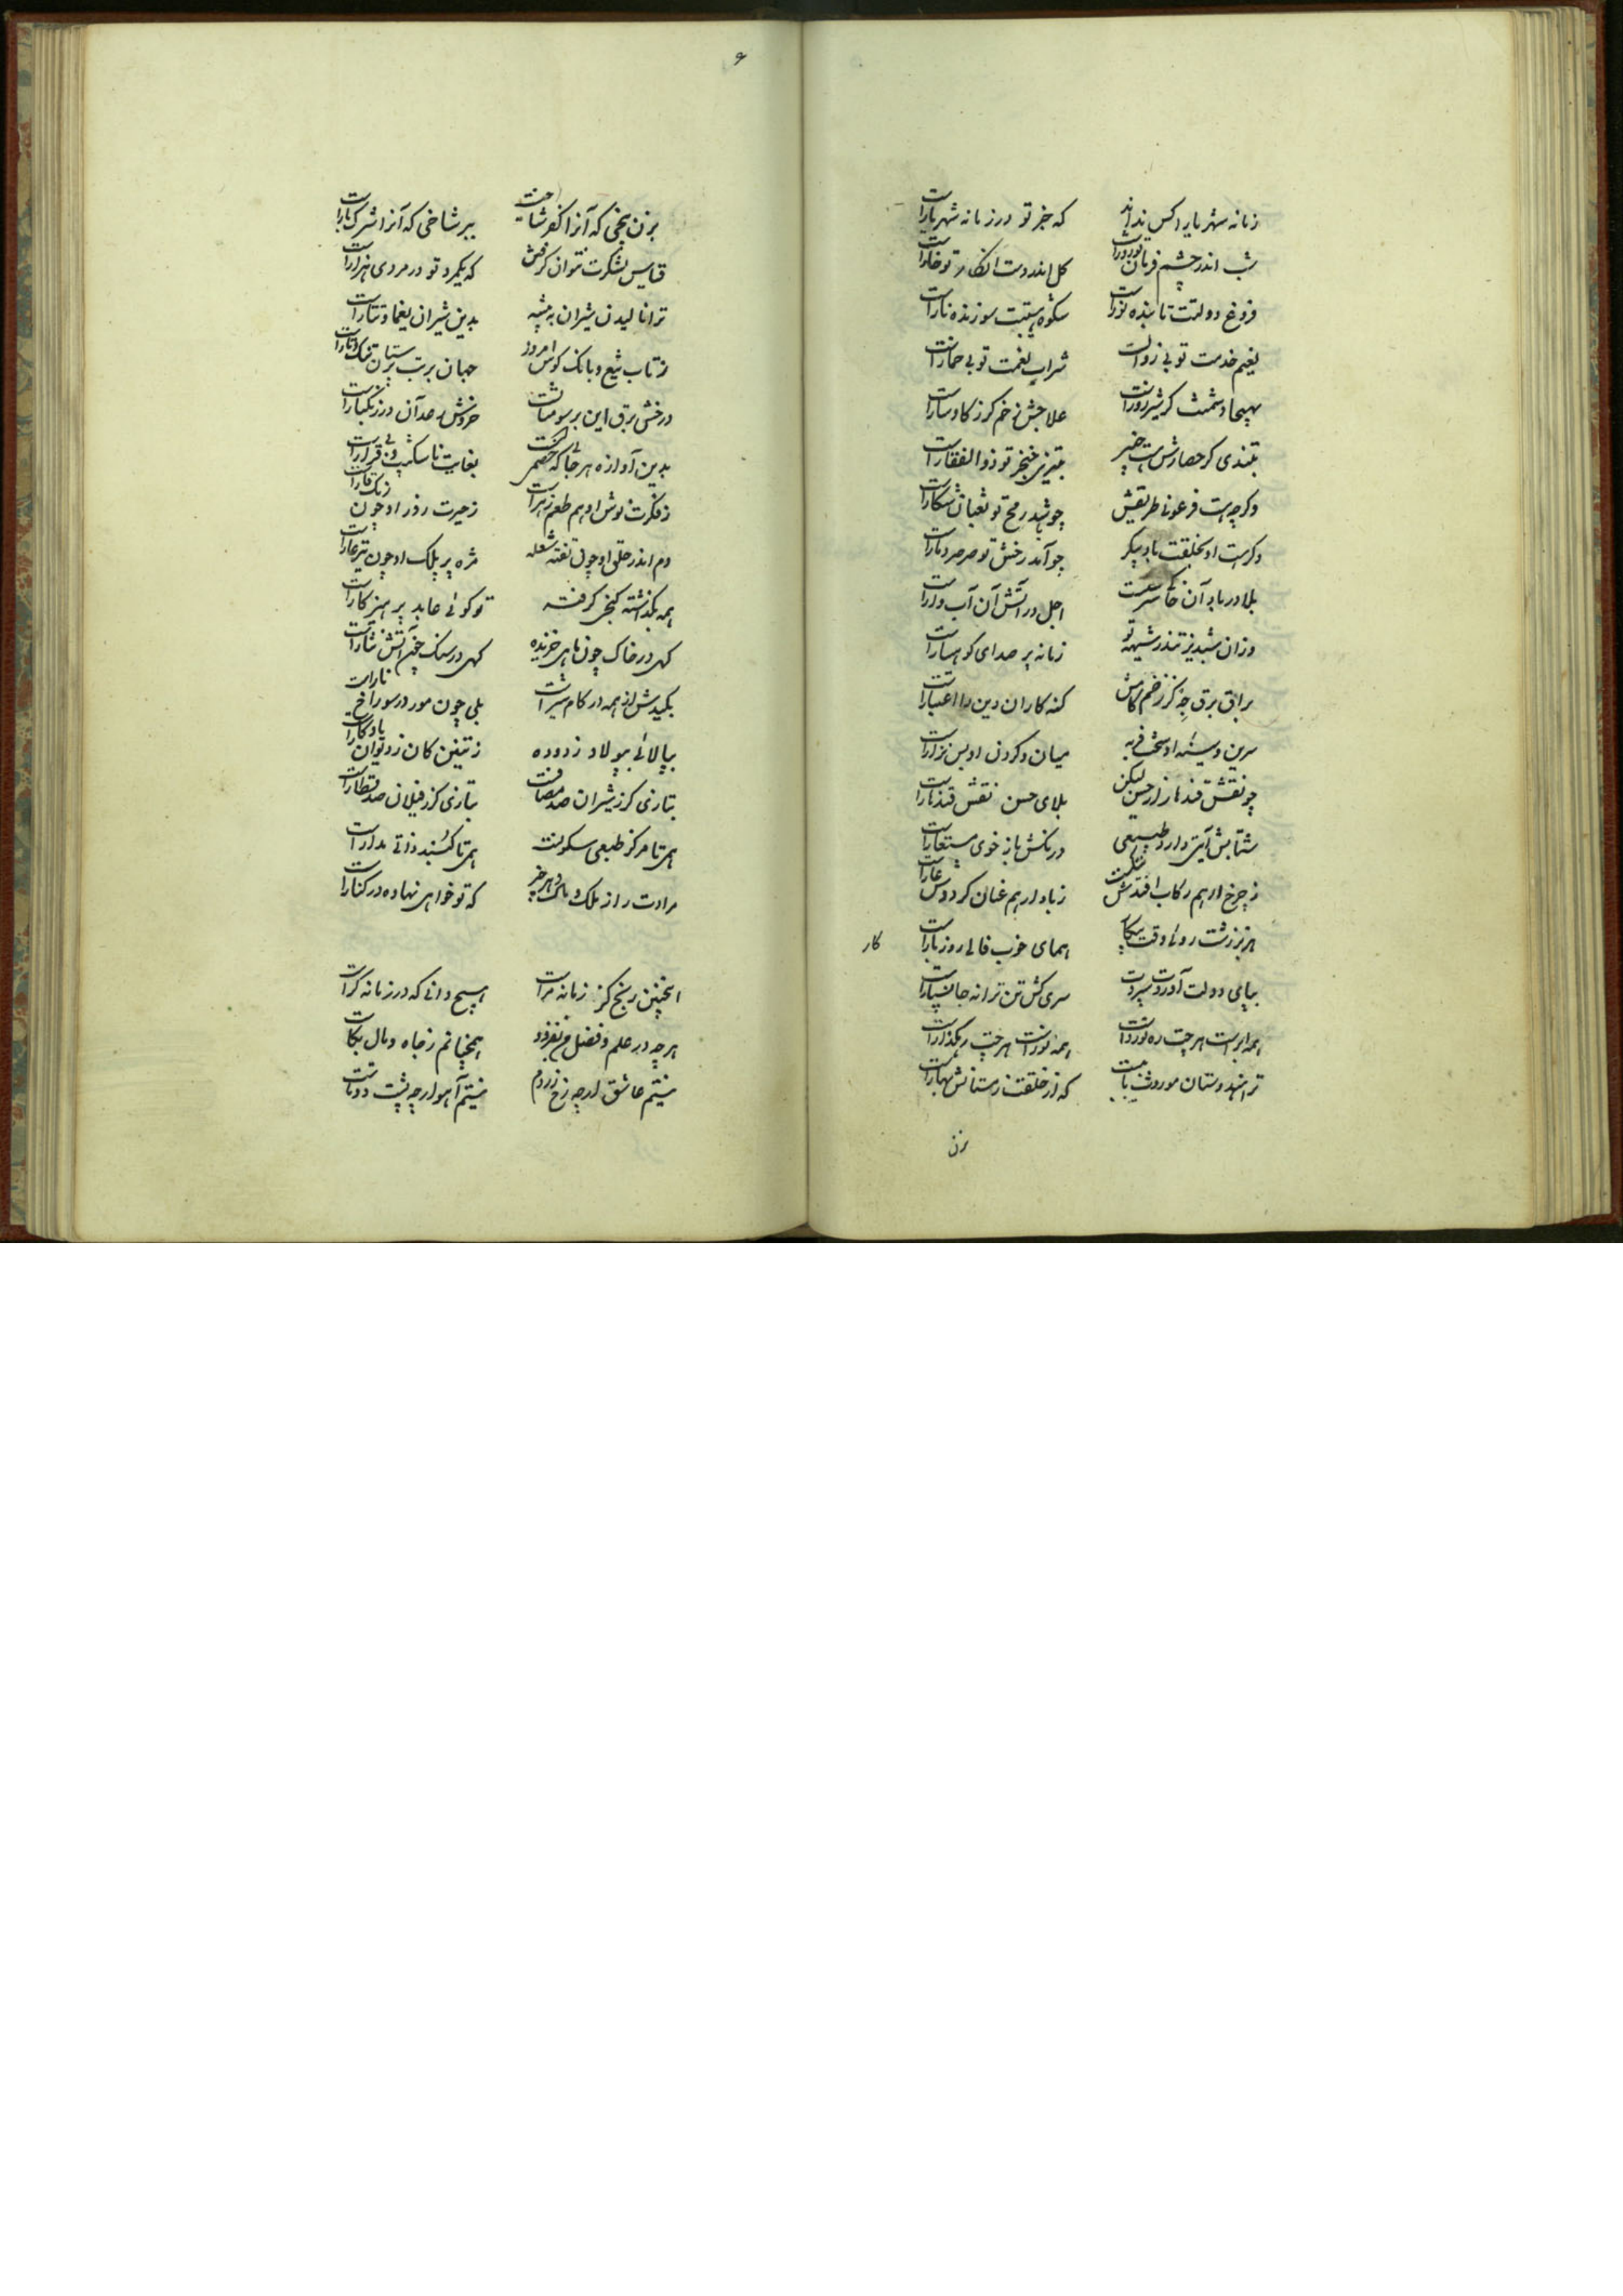 زمانه شهریارا کس نداند که جز تو در زمانه شهریارست
شب اندر چشم فرمان تو روزست گل اندر دست انکار تو خارست
فروغ دولتت تابنده نورست شکوه هیبتت سوزنده نارست
نعیم خدمت تو بی زوالست شراب نعمت تو بی خمارست
بهیجا دشمنت گر شیر زورست علاجش زخم گرز گاوسارست
بتندی گر حصارش هست خیبر بتیزی خنجر تو ذوالفقارست
وگر چه هست فرعونی طریقش چو شد رمح تو ثعبان شکارست
وگر هست او بخلقت باد پیکر چو آمد رخش تو صرصر دمارست
بلا در باد آن خاکی سرعت اجل در آتش آن آب دارست
وزان شبدیز تندر شیهه تو زمانه پر صدای کوهسارست
براق برق جه کز زخم گامش گنه کاران دین را اعتبارست
سرین و سینه او سخت فربه میان و گردن او بس نزارست
چو نقش قندهار از حسن لیکن بلای حسن نقش قندهارست
شتابش آیتی دارد طبیعی درنگش باز خوی مستعارست
ز چرخ ار هم رکاب افتدش ننگست ز باد ار هم عنان گرددش عارست
هزبر زشت روی وقت پیکار همای خوب فال روز بارست
بپای دولت آورد سپردت سری کش تن ترا نه جان سپارست
همه ابرست هر چت ره نوردست همه نورست هر چت رهگذارست
تر هندوستان موروث بابست که از خلقت زمستانش بهارست
کار
بزن
۶
بزن بیخی که آنرا کفر شاخست ببر شاخی که آنرا شرک بارست
قیاس لشکرت نتوان گرفتن که یکمرد تو در مردی هزارست
ترا نالیدن شیران به بیشه بدین شیران یغما و تتارست
ز تاب تیغ و بانگ کوس امروز جهان بر بت پرستان تنگ و تارست
درخش برق این بر سومناتست خروش رعد آن در زنگبارست
بدین آوازه هر جائی که خصمیست بغایت ناشکیب و بی قرارست
ز فکرت نوش او هم طعم زهرست ز حیرت روز او چون رنگ قارست
دم اندر حلق او چون تفته شعله مژه بر پلک او چون تیز خارست
همه بگذاشته کنجی گرفته تو گوئی عابد پرهیزکارست
گهی در خاک چون ماهی خزنده گهی در سنگ چون آتش نثارست
یکیدش از همه در کام شیرست یکی چون مور در سوراخ مارست
بپالائی بپولاد زدوده زتنین کان ز دیوان یادگارست
بتازی کز شیران صد مصافست بتازی کز فیلان صد قطارست
همی تا مرکز طبعی سکونست همی تا گنبد ذاتی مدارست
مرادت را ز ملک و مال و هر چیز که تو خواهی نهاده در کنارست
اینچنین رنج کز زمانه مراست هیچ دانی که در زمانه کراست
هر چه در علم و فضل من بفزود همچنانم ز جاه و مال بکاست
نیستم عاشق ار چه رخ زردم نیستم آهو ار چه پشت دوتاست